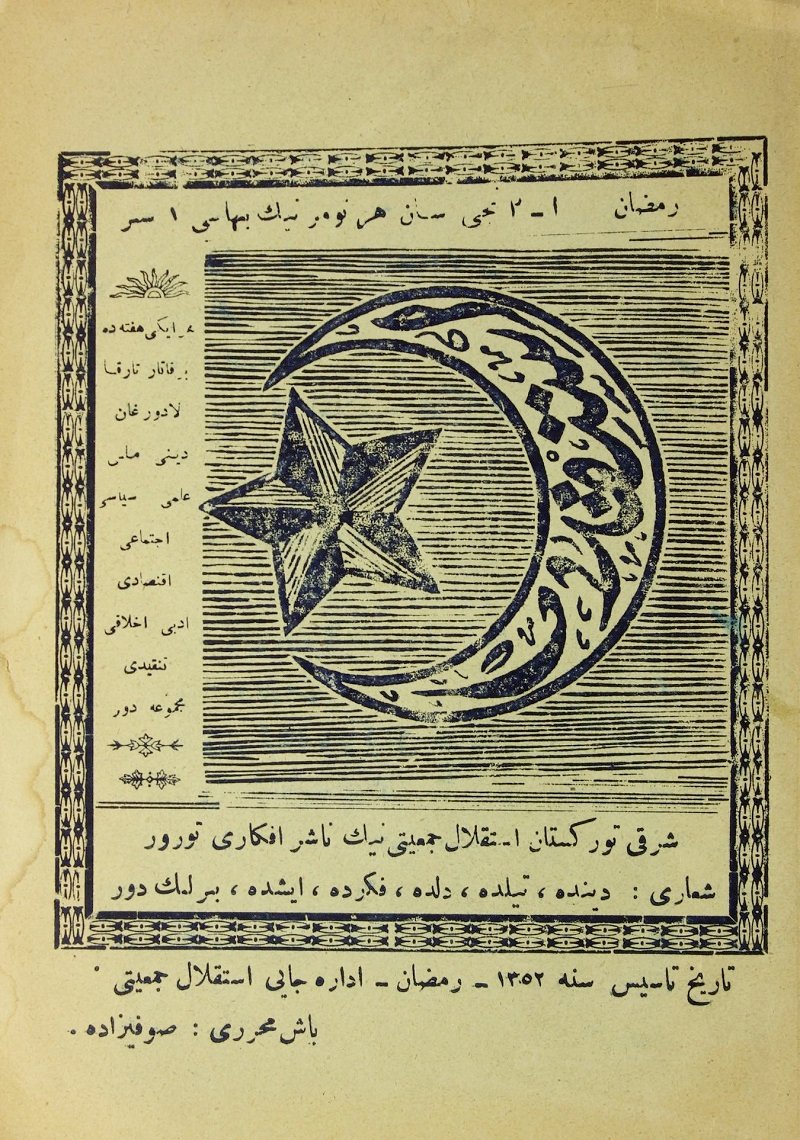 رمضان ١ـ٢ نجی سان هر نومر نیڭ بهاسی ١ سر
هر ایکی هفته ده
بر قاتار تارقا
لادورغان
دینی ملی
علمی سیاسی
اجتماعی
اقتصادی
ادبی اخلاقی
تنقیدی
مجموعه دور
استقلال
شرقی تورکستان استقلال جمعیتی نیڭ ناشر افکاری تورور
شعاری : دینده ، تیلده ، دلده ، فکرده ، ایشده ، بر لیك دور
تاریخ تاسیس سنه ١٣٥٢ ـ رمضان ـ اداره جایی استقلال جمعیتی
باش محرری : صوفیزاده .